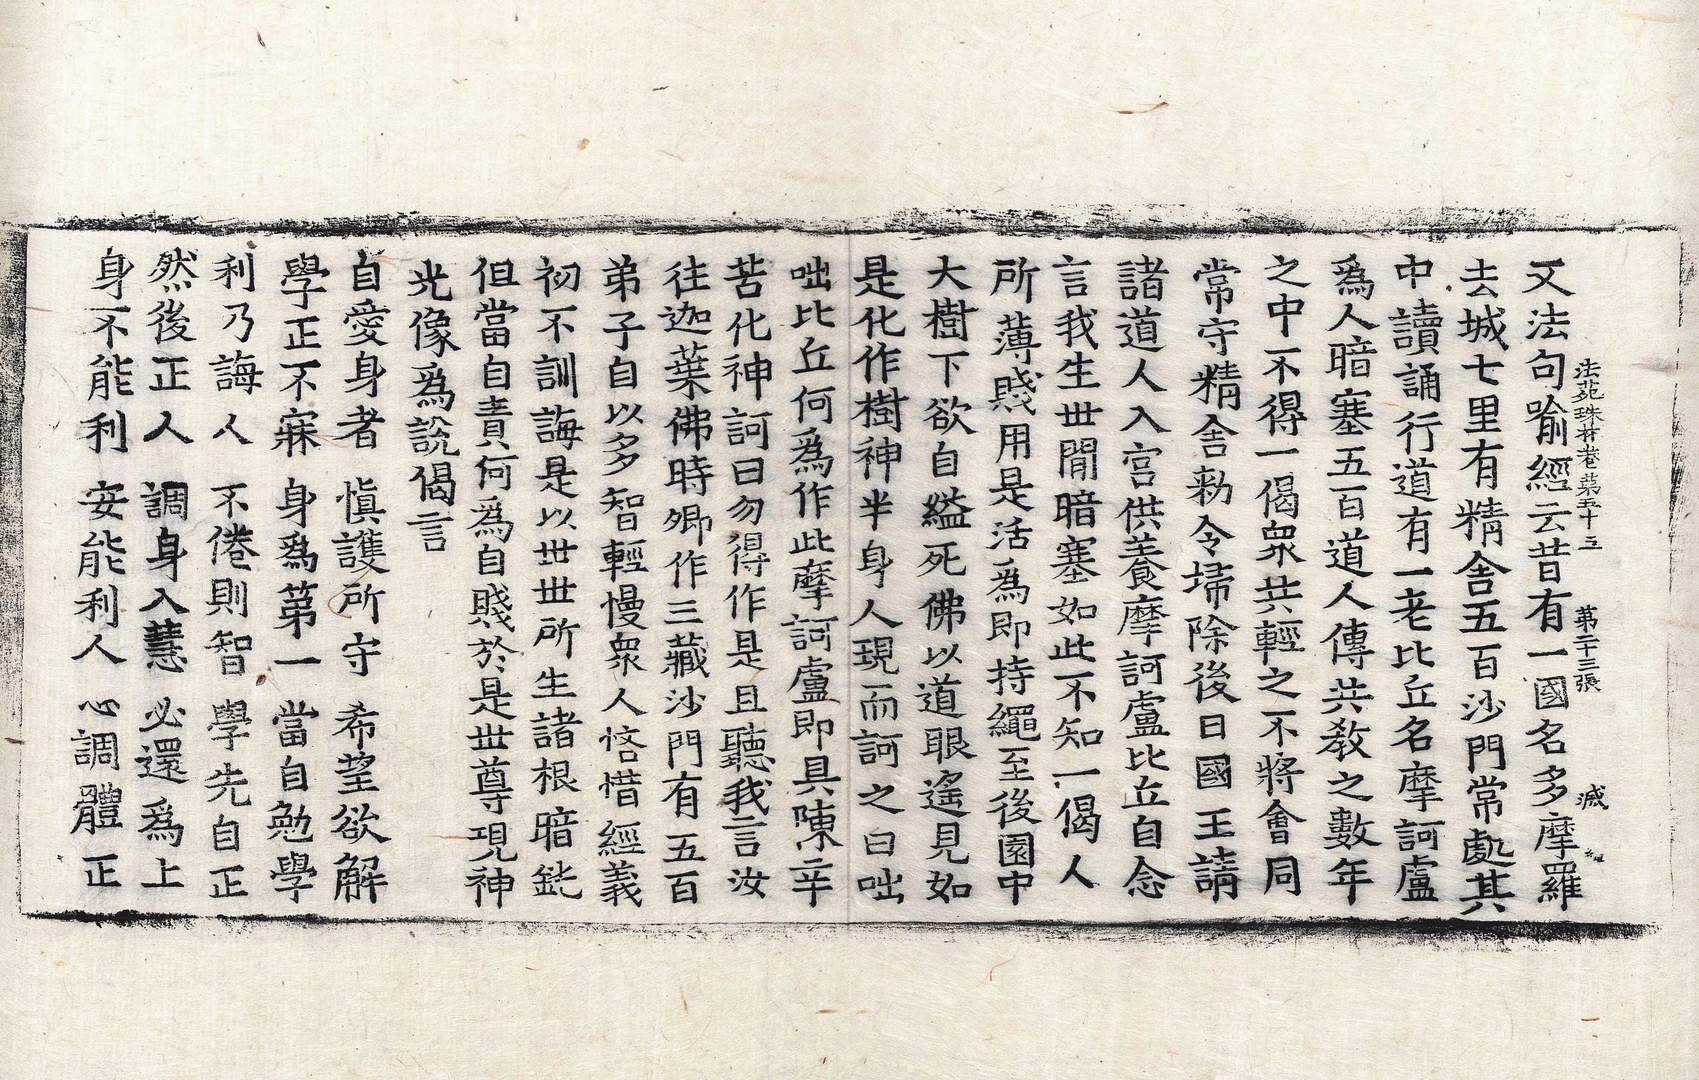 又法句喻經云昔有一國名多摩羅
法苑珠林卷第五十三 第二十三張 滅
去城七里有精舍五百沙門常處其
中讀誦行道有一老比丘名摩訶盧
爲人暗塞五百道人傳共敎之數年
之中不得一偈衆共輕之不將會同
常守精舍勑令埽除後日國王請
諸道人入宮供養摩訶盧比丘自念
言我生世閒暗塞如此不知一偈人
所薄賤用是活爲即持繩至後園中
大樹下欲自縊死佛以道眼遙見如
是化作樹神半身人現而訶之曰咄
咄比丘何爲作此摩訶盧即具陳辛
苦化神訶曰勿得作是且聽我言汝
往迦葉佛時卿作三藏沙門有五百
弟子自以多智輕慢衆人悋惜經義
初不訓誨是以世世所生諸根暗鈍
但當自責何爲自賤於是世尊現神
光像爲說偈言
自愛身者 愼護所守 希望欲解
學正不寐 身爲第一 當自勉學
利乃誨人 不倦則智 學先自正
然後正人 調身入慧 必還爲上
身不能利 安能利人 心調體正